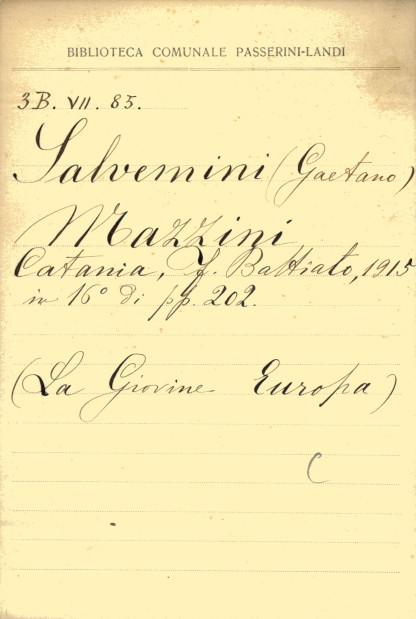 BIBLIOTECA COMUNALE PASSERINI-LANDI
3B. VII. 85.
Salvemini (Gaetano)
Mazzini
Catania, F. Battiato, 1915
in 16° di pp. 202.
(La Giovine Europa)
C